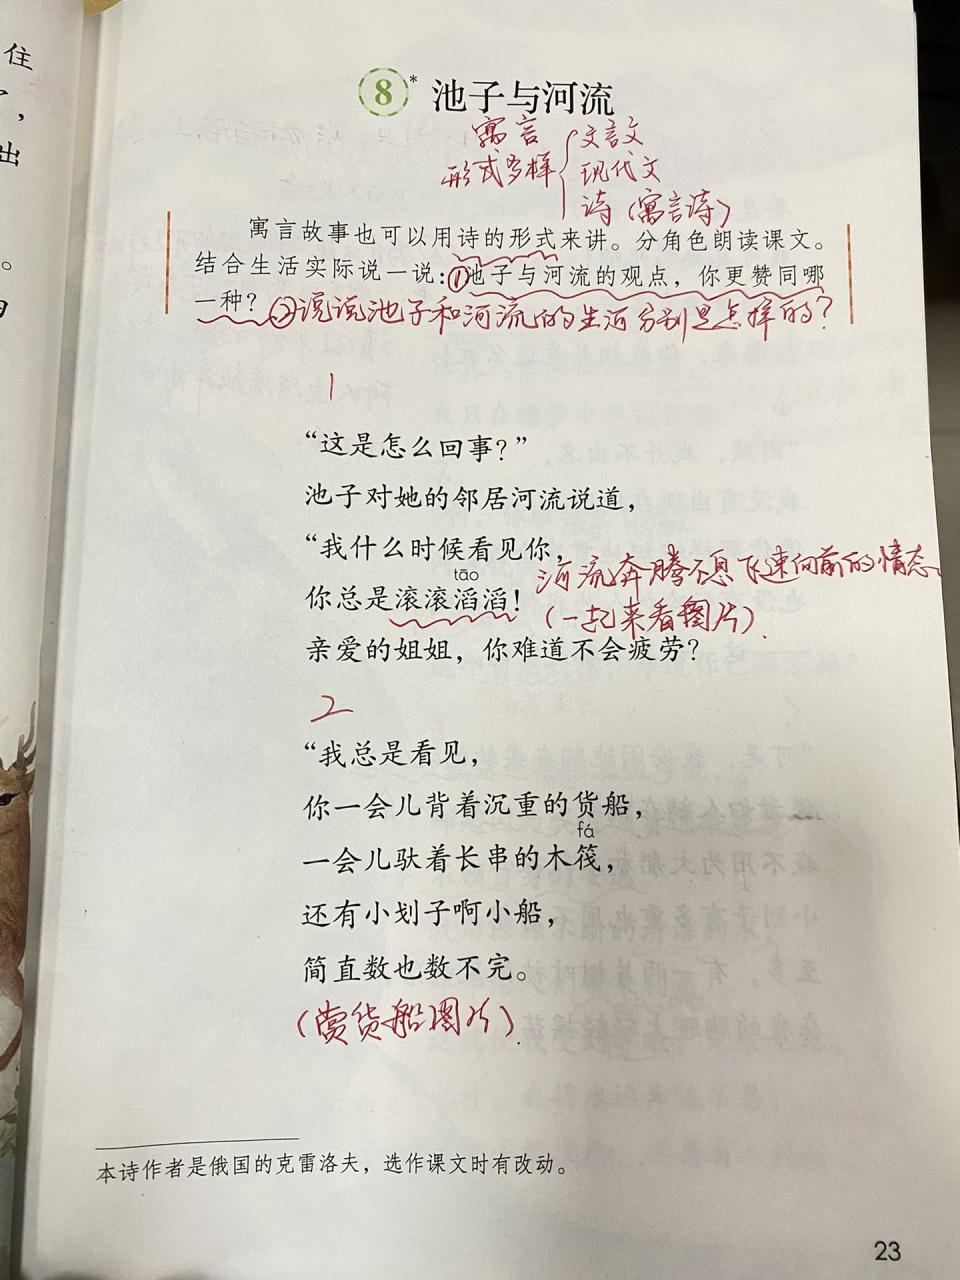 住
，
出
。
8* 池子与河流
寓言
形式多样
文言文
现代文
诗（寓言诗）
寓言故事也可以用诗的形式来讲。分角色朗读课文。
结合生活实际说一说：①池子与河流的观点，你更赞同哪
一种？②说说池子和河流的生河分别是怎样的？
1
“这是怎么回事？”
池子对她的邻居河流说道，
“我什么时候看见你，
tāo
你总是滚滚滔滔！
河流奔腾不息飞速向前的情态。
（一起来看图片）.
亲爱的姐姐，你难道不会疲劳？
2
“我总是看见，
你一会儿背着沉重的货船，
fá
一会儿驮着长串的木筏，
还有小划子啊小船，
简直数也数不完。
（赏货船图片）.
本诗作者是俄国的克雷洛夫，选作课文时有改动。
23